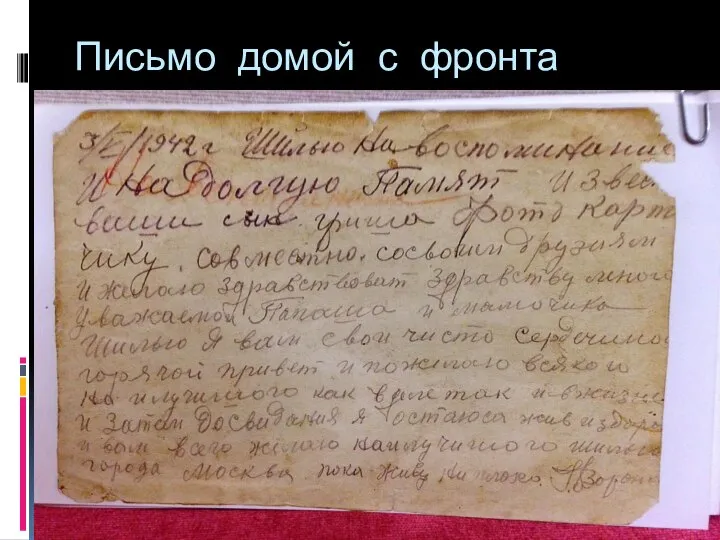 Письмо домой с фронта
1942 г Шилью на воспоминание
и на долгую Памят и звес
ваши сын гриша фото карт
чику. совместно. сосвоими друзиям
и желаю здравствоват здравству много
уважаемой Папаша и мамочика
Шилью я вам свои чисто сердечино
горячой привет и пожилаю всякого
на илучишого как в деле так и в жизне
и затем Досвидания я остаюса жив и здоро
и вам всего жилаю наилучишого
города Москва пока живу ни плохо